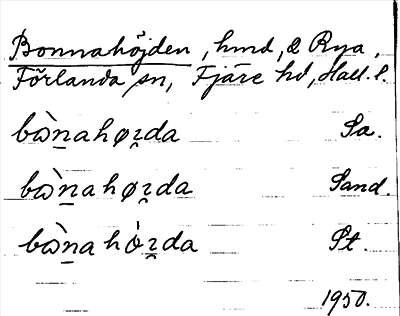 Bonnahöjden, hmd, å Rya,
Förlanda sn, Fjäre hd, Hall. l.
bὼn̲ahøʀ̯da Sa.
bὼn̲ahøʀ̯da Sand.
bὼn̲ahǿʀ̯da St.
1950.